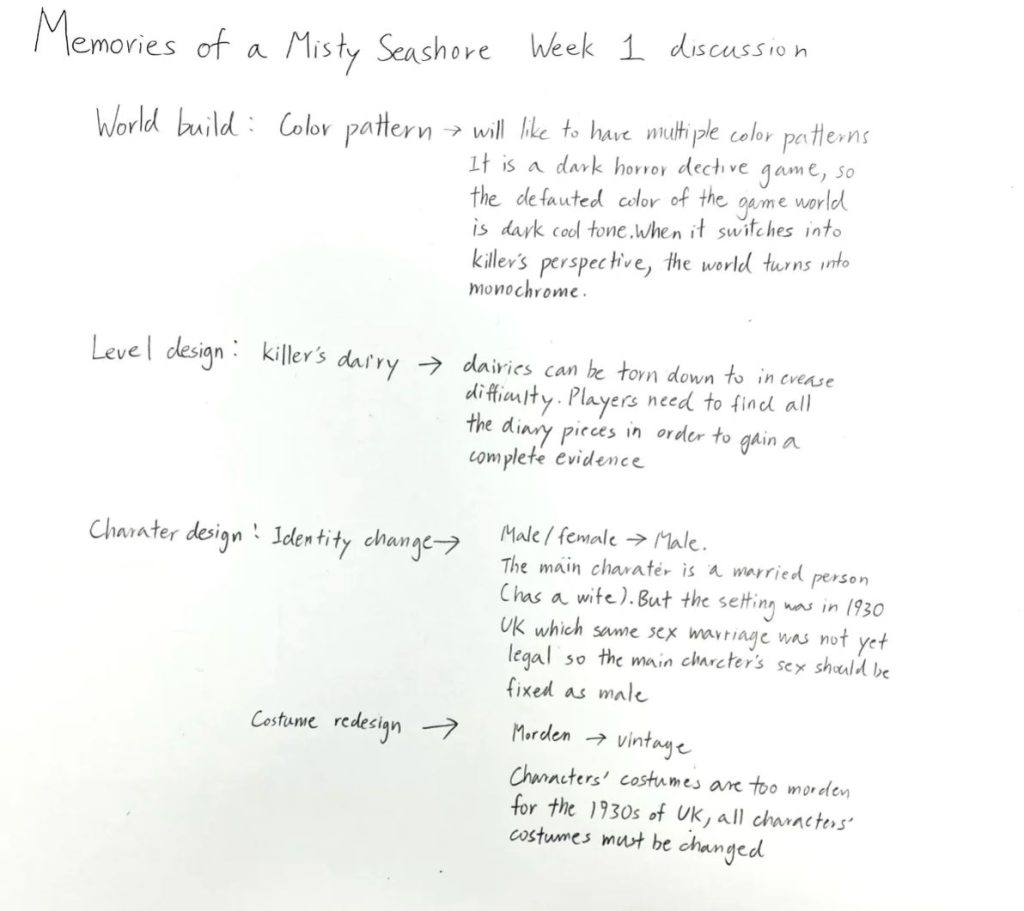 Memories of a Misty Seashore Week 1 discussion
World build: Color pattern → will like to have multiple color patterns
It is a dark horror dective game, so
the defauted color of the game world
is dark cool tone. When it switches into
killer's perspective, the world turns into
monochrome.
Level design: killer's dairy → dairies can be torn down to increase
difficulty. Players need to find all
the diary pieces in order to gain a
complete evidence
Charater design: Identity change → Male/female → Male.
The main charater is a married person
(has a wife). But the setting was in 1930
UK which same sex marriage was not yet
legal so the main charcter's sex should be
fixed as male
Costume redesign → Morden → vintage
Characters' costumes are too morden
for the 1930s of UK, all characters'
costumes must be changed